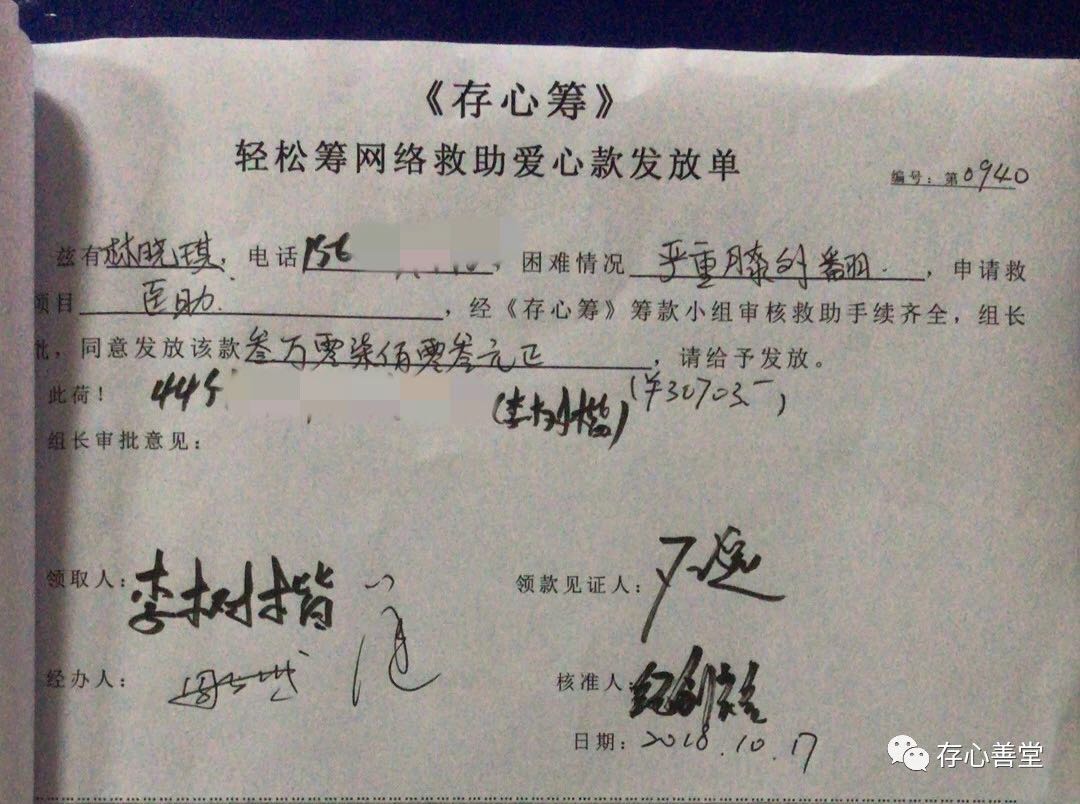 《存心筹》
轻松筹网络救助爱心款发放单
编号：第0940
兹有林晓琪，电话156，困难情况严重膝外翻，申请救
项目医助，经《存心筹》筹款小组审核救助手续齐全，组长
批，同意发放该款叁万零柒佰零叁元正，请给予发放。
此荷！445 (李树楷) (¥30703元)
组长审批意见：
领取人：李树楷 领款见证人：
经办人： 核准人：
日期：2018.10.17
存心善堂